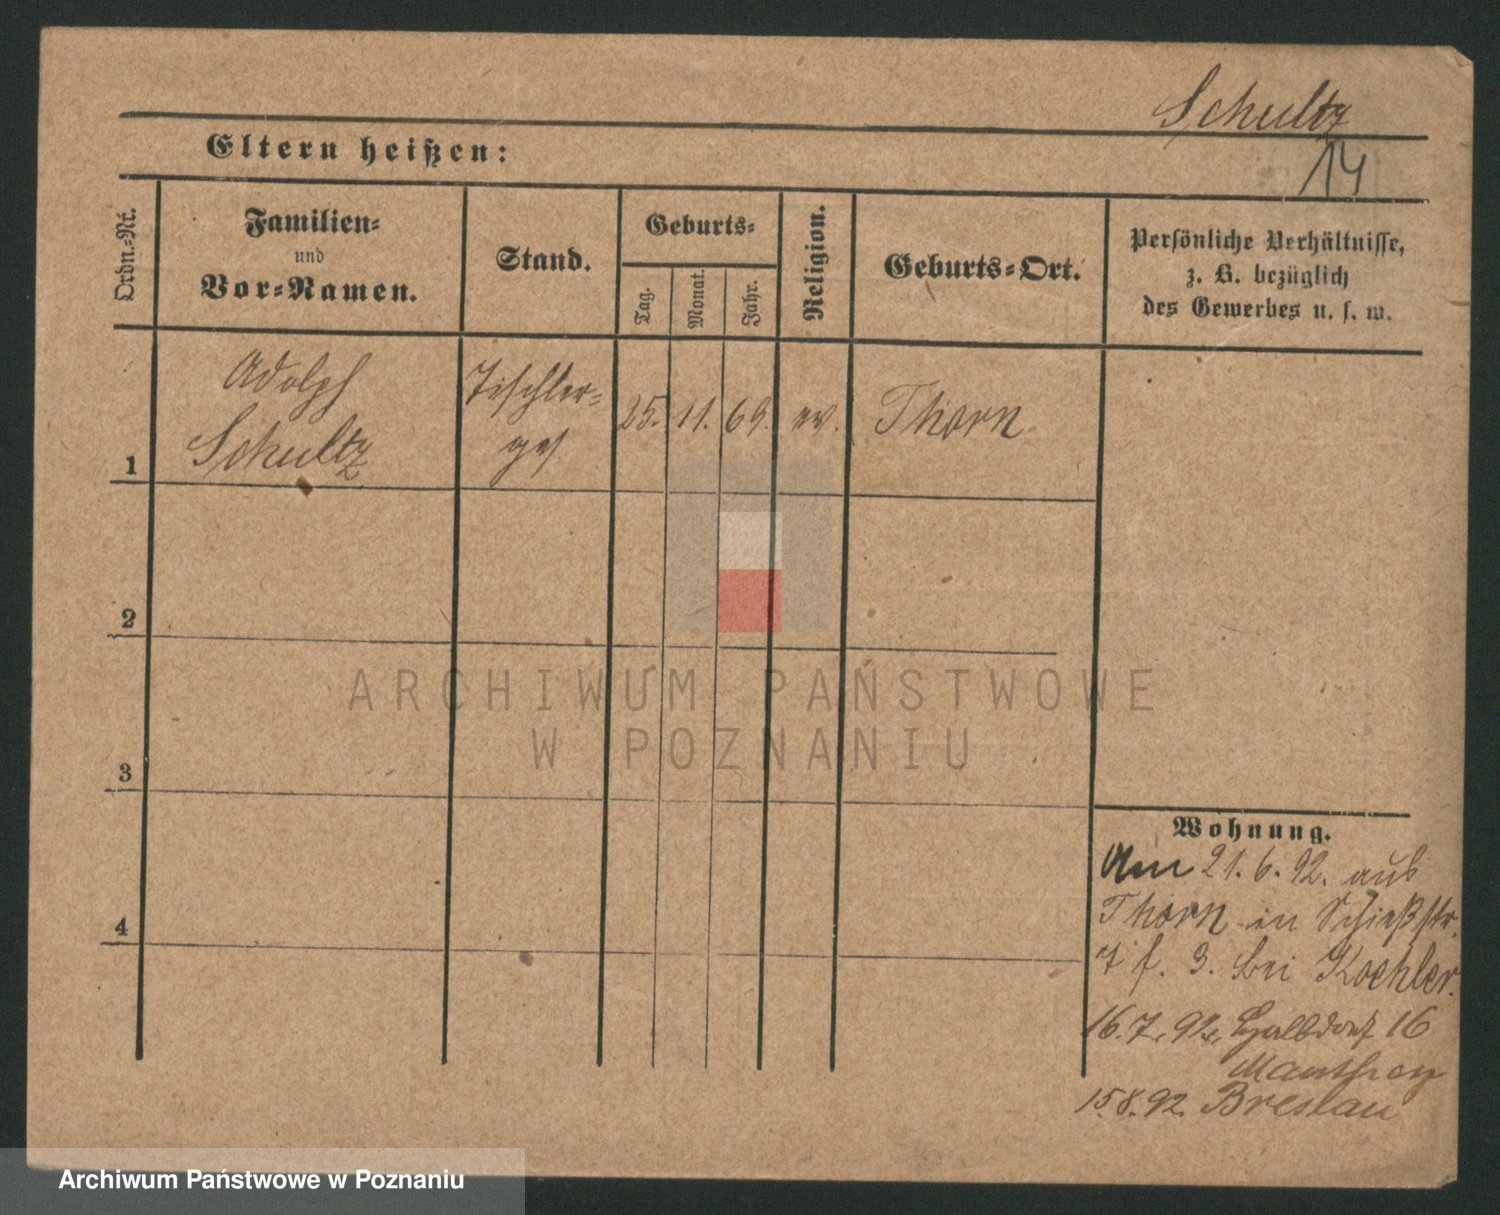 Schultz
14
Eltern heißen:
Ordn.-Nr.
Familien-
und
Vor-Namen.
Stand.
Geburts-
Tag.
Monat.
Jahr.
Religion.
Geburts-Ort.
Persönliche Verhältnisse,
z. B. bezüglich
des Gewerbes u. s. w.
1
Adolph
Schultz
Tischler-
ges
25. 11. 69. ev. Thorn
2
3
4
ARCHIWUM PAŃSTWOWE
W POZNANIU
Wohnung.
Am 21. 6. 92. aus
Thorn in Schießstr.
7 f. 3. bei Koehler.
16. 7. 92. Halbdorf 16
Manthey
15.8.92. Breslau
Archiwum Państwowe w Poznaniu